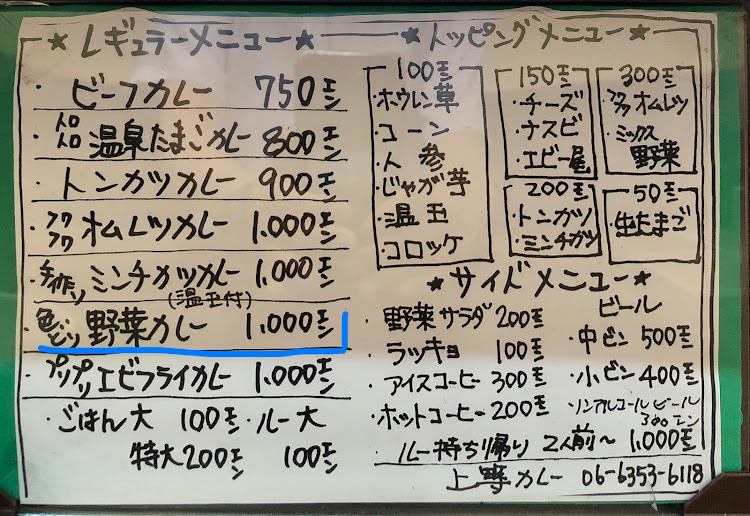 ★レギュラーメニュー★
・ビーフカレー 750エン
・トロトロ温泉たまごカレー 800エン
・トンカツカレー 900エン
・フワフワオムレツカレー 1.000エン
・手作りミンチカツカレー 1.000エン
(温玉付)
・色どり野菜カレー 1.000エン
・プリプリエビフライカレー 1.000エン
・ごはん大 100エン・ルー大
特大200エン 100エン
★トッピングメニュー★
100エン
・ホウレン草
・コーン
・人参
・じゃが芋
・温玉
・コロッケ
150エン
・チーズ
・ナスビ
・エビ一尾
200エン
・トンカツ
・ミンチカツ
300エン
・フワフワオムレツ
・ミックス野菜
50エン
・生たまご
★サイドメニュー★
・野菜サラダ 200エン
・ラッキョ 100エン
・アイスコーヒー 300エン
・ホットコーヒー 200エン
ビール
・中ビン 500エン
・小ビン 400エン
・ノンアルコールビール
300エン
・ルー持ち帰り 2人前〜 1.000エン
上等カレー 06-6353-6118